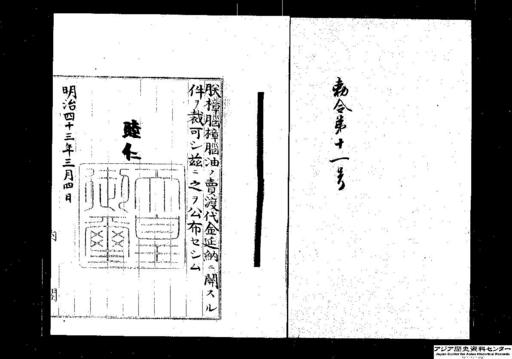 勅令第十一号
朕樟脳樟脳油ノ賣渡代金延納ニ關スル
件ヲ裁可シ茲ニ之ヲ公布セシム
睦仁
天皇御璽
明治四十三年三月四日
内閣
アジア歴史資料センター
Japan Center for Asian Historical Records